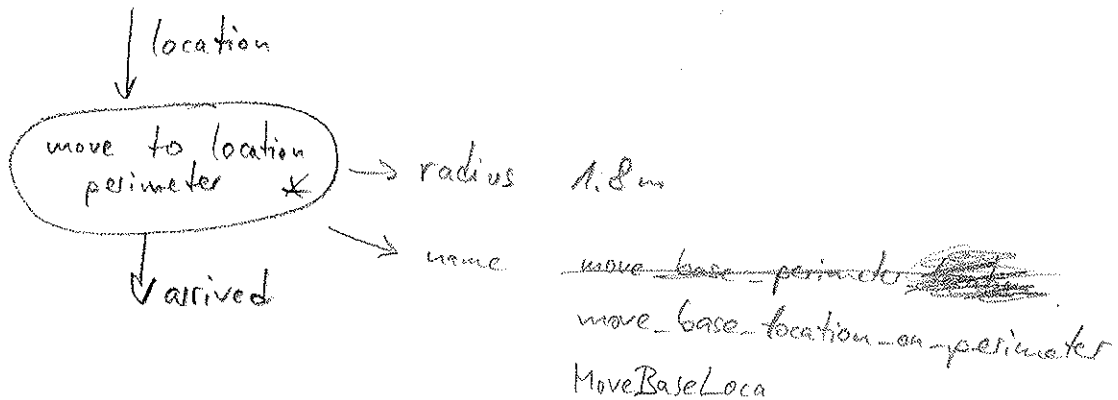 location
move to location
perimeter *
radius 1.8m
name move_base_perimeter
arrived
move_base_location_on_perimeter
MoveBaseLoca